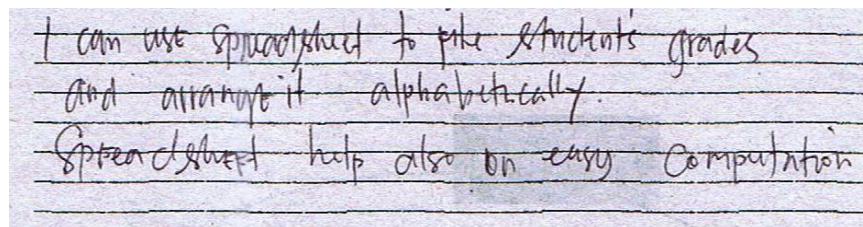 I can use spreadsheet to file student's grades
and arrange it alphabetically.
Spreadsheet help also on easy computation